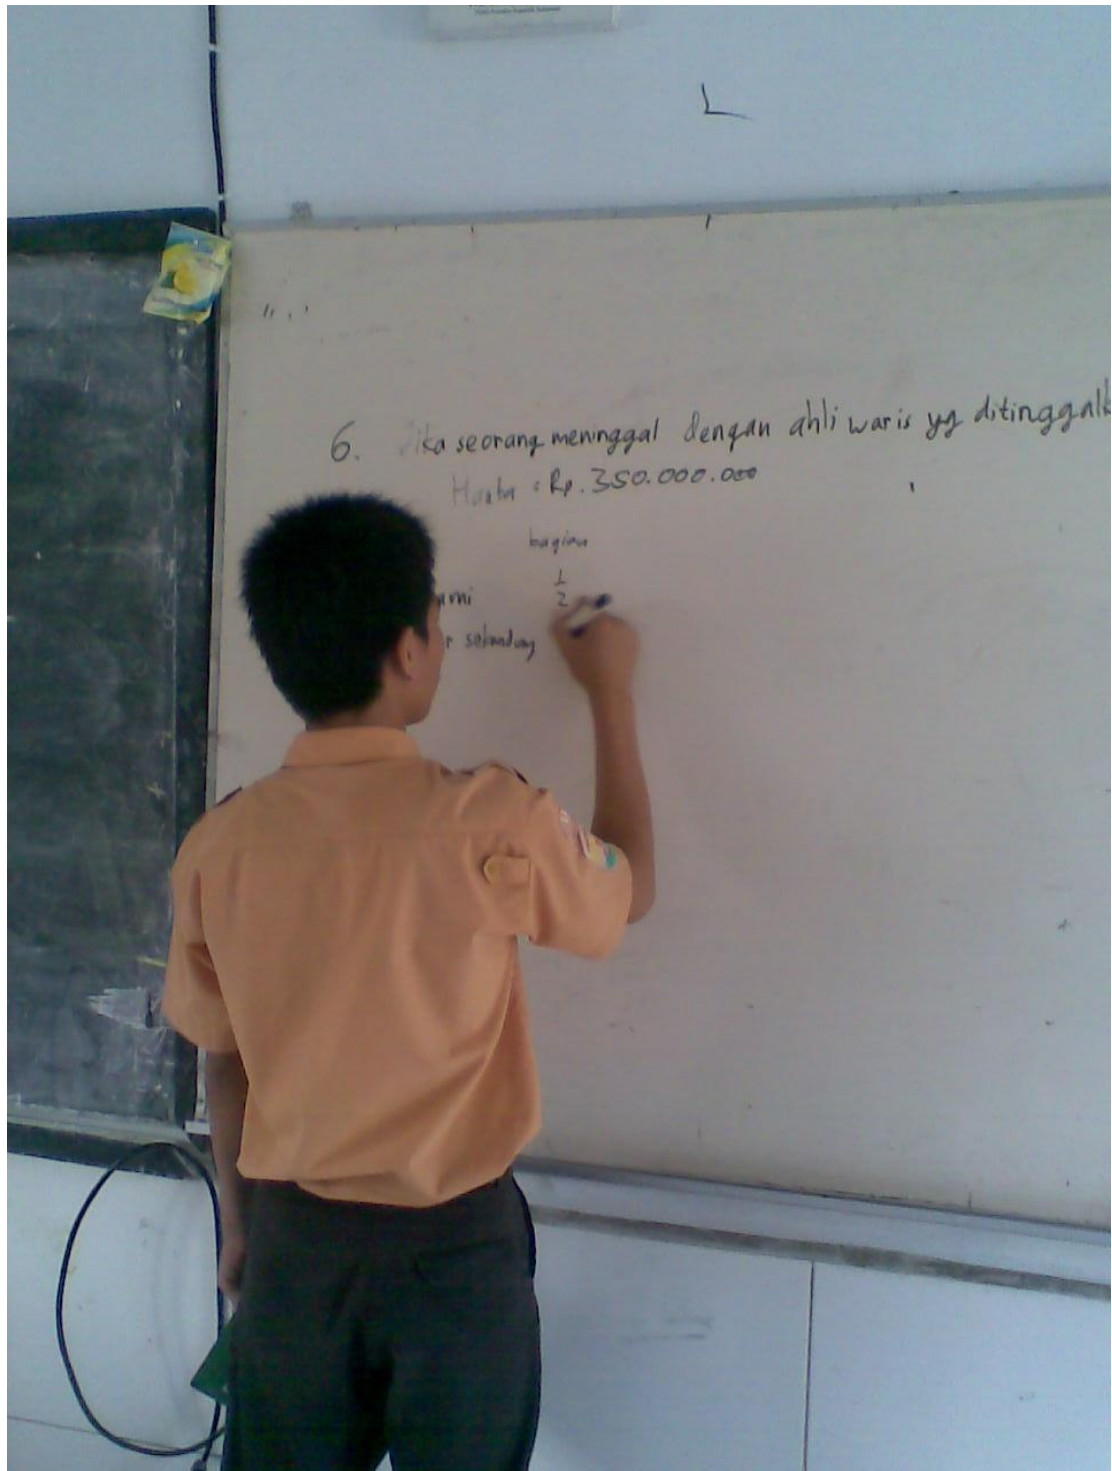 6. Jika seorang meninggal dengan ahli waris yg ditinggalk
Harta = Rp. 350.000.000
bagian
ami 1/2
r sekandung